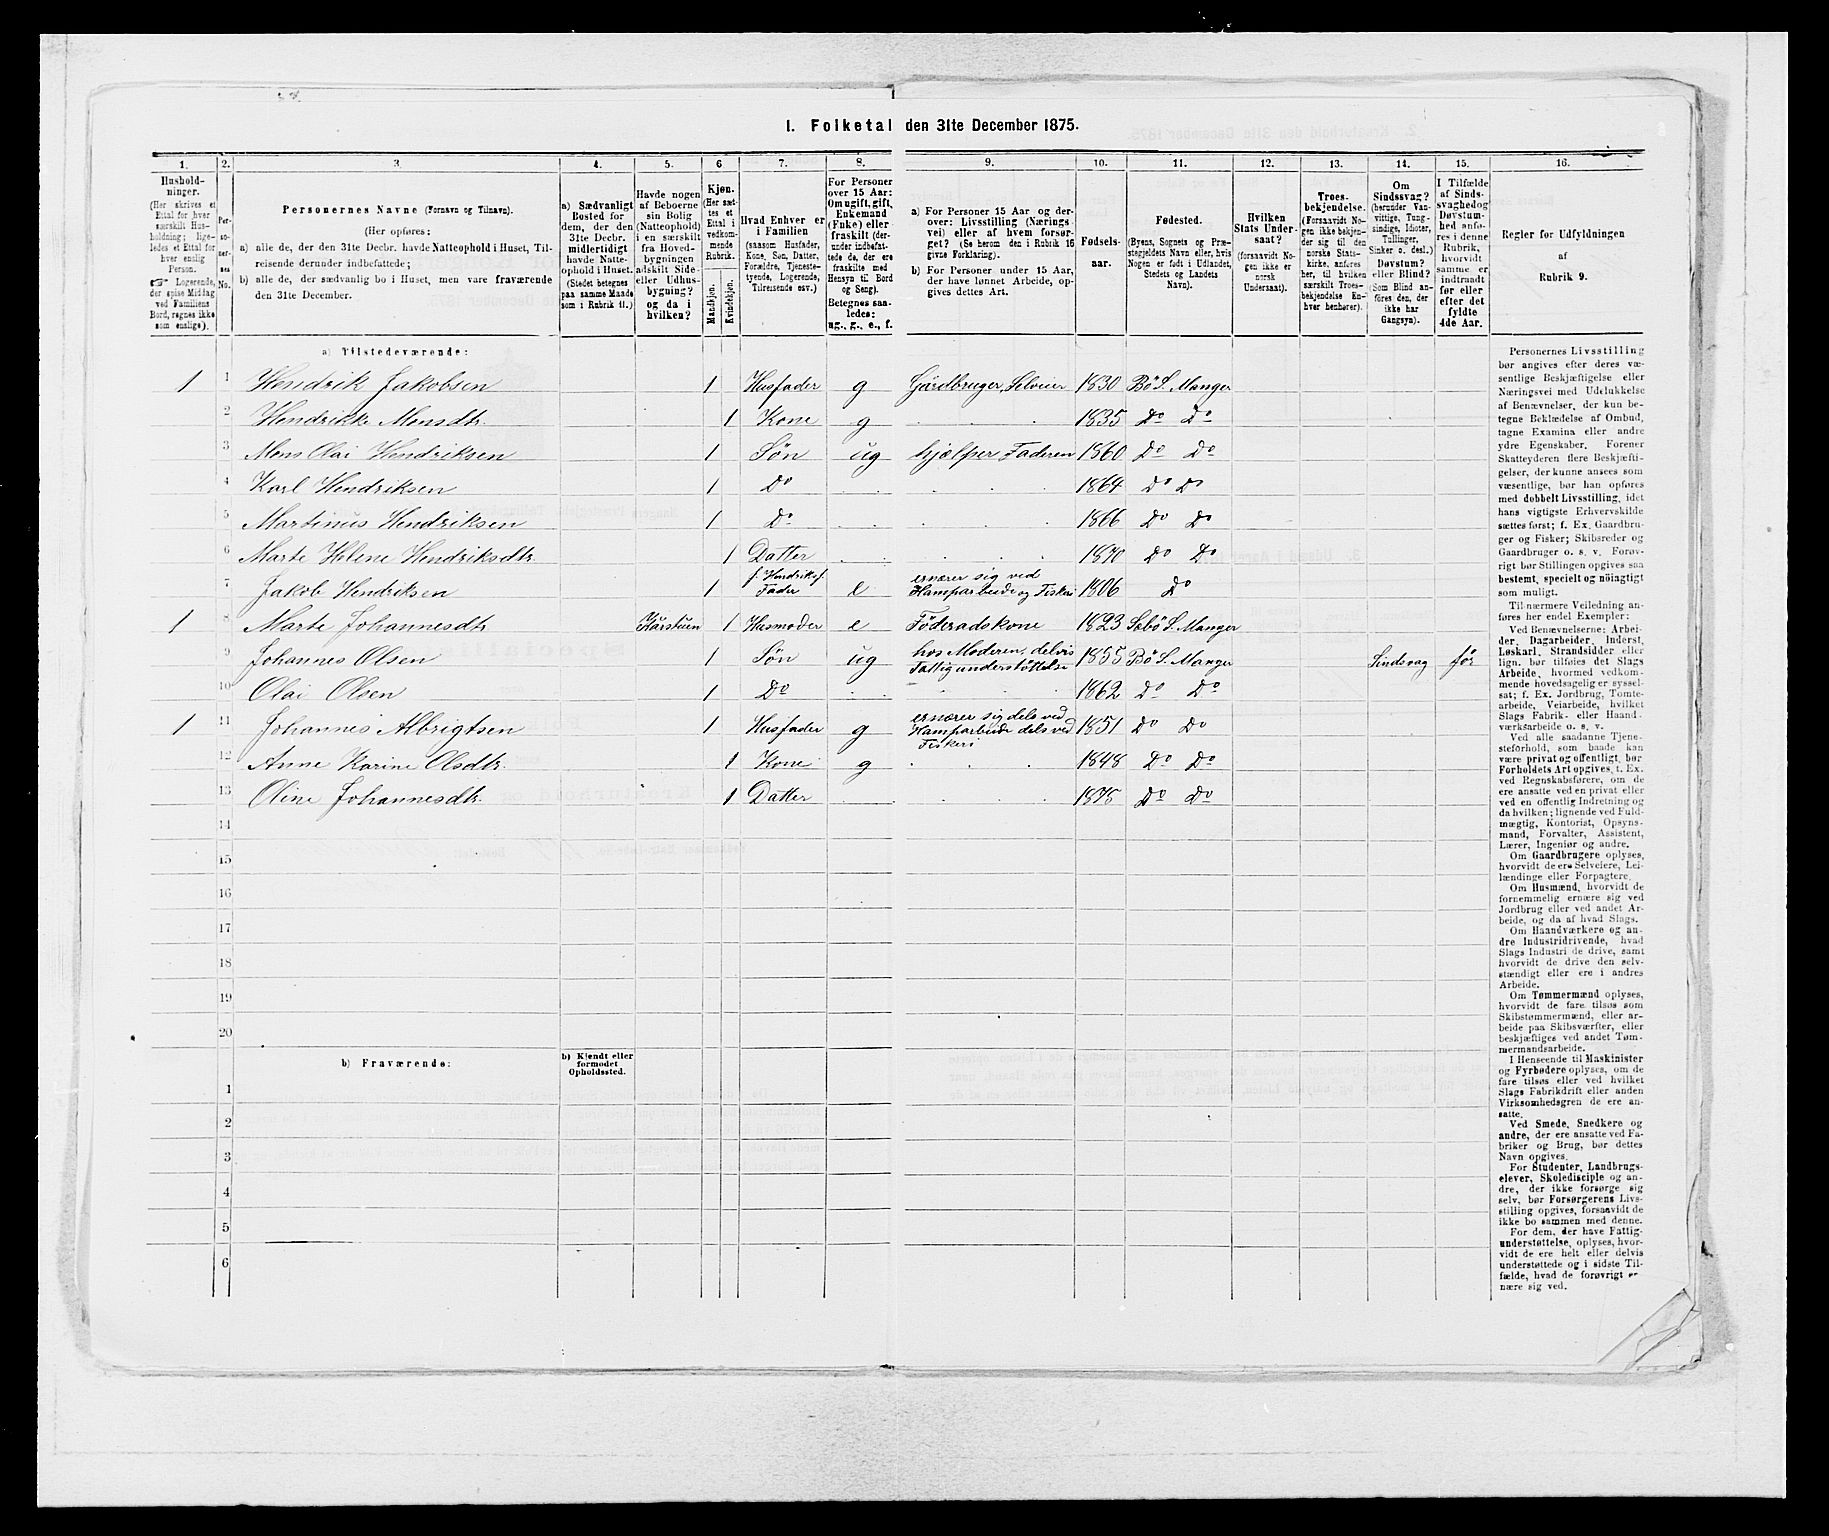 I. Folketal den 31te December 1875.
1. 2. 3. 4. 5. 6 7. 8. 9. 10. 11. 12. 13. 14. 15. 16.
Hushold-
ninger.
(Her skrives et
Ettal for hver
særskilt Hus-
holdning; lige-
ledes et Ettal for
hver enslig
Person.
☞ Logerende,
der spise Middag
ved Familiens
Bord, regnes ikke
som enslige).
Per-
so-
ner-
nes
No.
Personernes Navne (Fornavn og Tilnavn).
(Her opføres:
a) alle de, der den 31te Decbr. havde Natteophold i Huset, Til-
reisende derunder indbefattede;
b) alle de, der sædvanlig bo i Huset, men vare fraværende
den 31te December.
a) Sædvanligt
Bosted for
dem, der den
31te Decbr.
midlertidigt
havde Natte-
ophold i Huset.
(Stedet betegnes
paa samme Maade
som i Rubrik 11.)
Havde nogen
af Beboerne
sin Bolig
(Natteophold)
i en særskilt
fra Hoved-
bygningen
adskilt Side-
eller Udhus-
bygning?
og da i
hvilken?
Kjøn.
(Her sæt-
tes et
Ettal i
vedkom-
mende
Rubrik.
Mandkjøn.
Kvindekjøn.
Hvad Enhver er
i Familien
(saasom Husfader,
Kone, Søn, Datter,
Forældre, Tjeneste-
tyende, Logerende,
Tilreisende osv.)
For Personer
over 15 Aar:
Om ugift, gift,
Enkemand
(Enke) eller
fraskilt (der-
under indbefat-
tede de, der ere
fraskilte med
Hensyn til Bord
og Seng).
Betegnes saa-
ledes:
ug., g., e., f.
a) For Personer 15 Aar og der-
over: Livsstilling (Nærings-
vei) eller af hvem forsør-
get? (Se herom den i Rubrik 16
givne Forklaring).
b) For Personer under 15 Aar,
der have lønnet Arbeide, op-
gives dettes Art.
Fødsels-
aar.
Fødested.
(Byens, Sognets og Præ-
stegjeldets Navn eller, hvis
Nogen er født i Udlandet,
Stedets og Landets
Navn).
Hvilken
Stats Under-
saat?
(forsaavidt No-
gen ikke er
norsk
Undersaat).
Troes-
bekjendelse.
(Forsaavidt No-
gen ikke bekjen-
der sig til den
norske Stats-
kirke, anføres
her, til hvilken
særskilt Troes-
bekjendelse En-
hver henhører).
Om
Sindssvag?
(herunder Van-
vittige, Tung-
sindige, Idioter,
Tullinger,
Sinker o. desl.)
Døvstum?
eller Blind?
(Som Blind an-
føres den, der
ikke har
Gangsyn).
I Tilfælde
af Sinds-
svaghed og
Døvstum-
hed anfø-
res i denne
Rubrik,
hvorvidt
samme er
indtraadt
før eller
efter det
fyldte
4de Aar.
Regler for Udfyldningen
af
Rubrik 9.
a) Tilstedeværende:
1 1 Hendrik Jakobsen 1 Husfader g Gårdbruger, Selveier 1830 Bö S. Manger
2 Hendrikke Monsdtr. 1 Kone g 1835 Do Do
3 Mons Olai Hendriksen 1 Søn ug hjælper Faderen 1860 Do Do
4 Karl Hendriksen 1 Do 1864 Do Do
5 Martinus Hendriksen 1 Do 1866 Do Do
6 Marte Helene Hendriksdtr. 1 Datter 1870 Do Do
7 Jakob Hendriksen 1 f. Hendriks f. Fader e ernærer sig ved Hamparbeide og Fiskeri 1806 Do
1 8 Marte Johannesdtr. Kårstuen 1 Husmoder e Föderadskone 1823 Sæbö S. Manger
9 Johannes Olsen 1 Søn ug hos Moderen, delvis Fattigunderstöttelse 1855 Bö S. Manger Sindsvag för
10 Olai Olsen 1 Do 1862 Do Do
1 11 Johannes Albrigtsen 1 Husfader g ernærer sig dels ved Hamparbeide dels ved Fiskeri 1851 Do Do
12 Anne Karine Olsdtr. 1 Kone g 1848 Do Do
13 Oline Johannesdtr. 1 Datter 1875 Do do
14
15
16
17
18
19
20
b) Fraværende:
b) Kjendt eller
formodet
Opholdssted.
1
2
3
4
5
6
Personernes Livsstilling
bør angives efter deres væ-
sentlige Beskjæftigelse eller
Næringsvei med Udelukkelse
af Benævnelser, der kun be-
tegne Beklædelse af Ombud,
tagne Examina eller andre
ydre Egenskaber. Forener
Skatteyderen flere Beskjæfti-
gelser, der kunne ansees som
væsentlige, bør han opføres
med dobbelt Livsstilling, idet
hans vigtigste Erhvervskilde
sættes først; f. Ex. Gaardbru-
ger og Fisker; Skibsreder og
Gaardbruger o. s. v. Forøv-
rigt bør Stillingen opgives saa
bestemt, specielt og nöiagtigt
som muligt.
Til nærmere Veiledning an-
føres her endel Exempler:
Ved Benævnelserne: Arbei-
der, Dagarbeider, Inderst,
Løskarl, Strandsidder eller
lign. bør tilføies det Slags
Arbeide, hvormed vedkom-
mende hovedsagelig er syssel-
sat; f. Ex. Jordbrug, Tomte-
arbeide, Veiarbeide, hvilket
Slags Fabrik- eller Haand-
værksarbeide o. s. v.
Ved alle saadanne Tjene-
steforhold, som baade kan
være privat og offentligt, bør
Forholdets Art opgives, t. Ex.
ved Regnskabsførere, om de
ere ansatte ved en privat eller
ved en offentlig Indretning og
da hvilken; lignende ved Fuld-
mægtig, Kontorist, Opsyns-
mand, Forvalter, Assistent,
Lærer, Ingeniør og andre.
Om Gaardbrugere oplyses,
hvorvidt de ere Selveiere, Lei-
lændinge eller Forpagtere.
Om Husmænd, hvorvidt de
fornemmelig ernære sig ved
Jordbrug eller ved andet Ar-
beide, og da af hvad Slags.
Om Haandværkere og an-
dre Industridrivende, hvad
Slags Industri de drive, samt
hvorvidt de drive den selv-
stændigt eller ere i andres
Arbeide.
Om Tømmermænd oplyses,
hvorvidt de fare tilsøs som
Skibstømmermænd, eller ar-
beide paa Skibsværfter, eller
beskjæftiges ved andet Tøm-
mermandsarbeide.
I Henseende til Maskinister
og Fyrbødere oplyses, om de
fare tilsøs eller ved hvilket
Slags Fabrikdrift eller anden
Virksomhedsgren de ere an-
satte.
Ved Smede, Snedkere og
andre, der ere ansatte ved Fa-
briker og Brug, bør dettes
Navn opgives.
For Studenter, Landbrugs-
elever, Skoledisciple og an-
dre, der ikke forsørge sig
selv, bør Forsørgerens Livs-
stilling opgives, forsaavidt de
ikke bo sammen med denne.
For dem, der have Fattig-
understøttelse, oplyses, hvor-
vidt de ere helt eller delvis
understøttede og i sidste Til-
fælde, hvad de forøvrigt er-
nære sig ved.